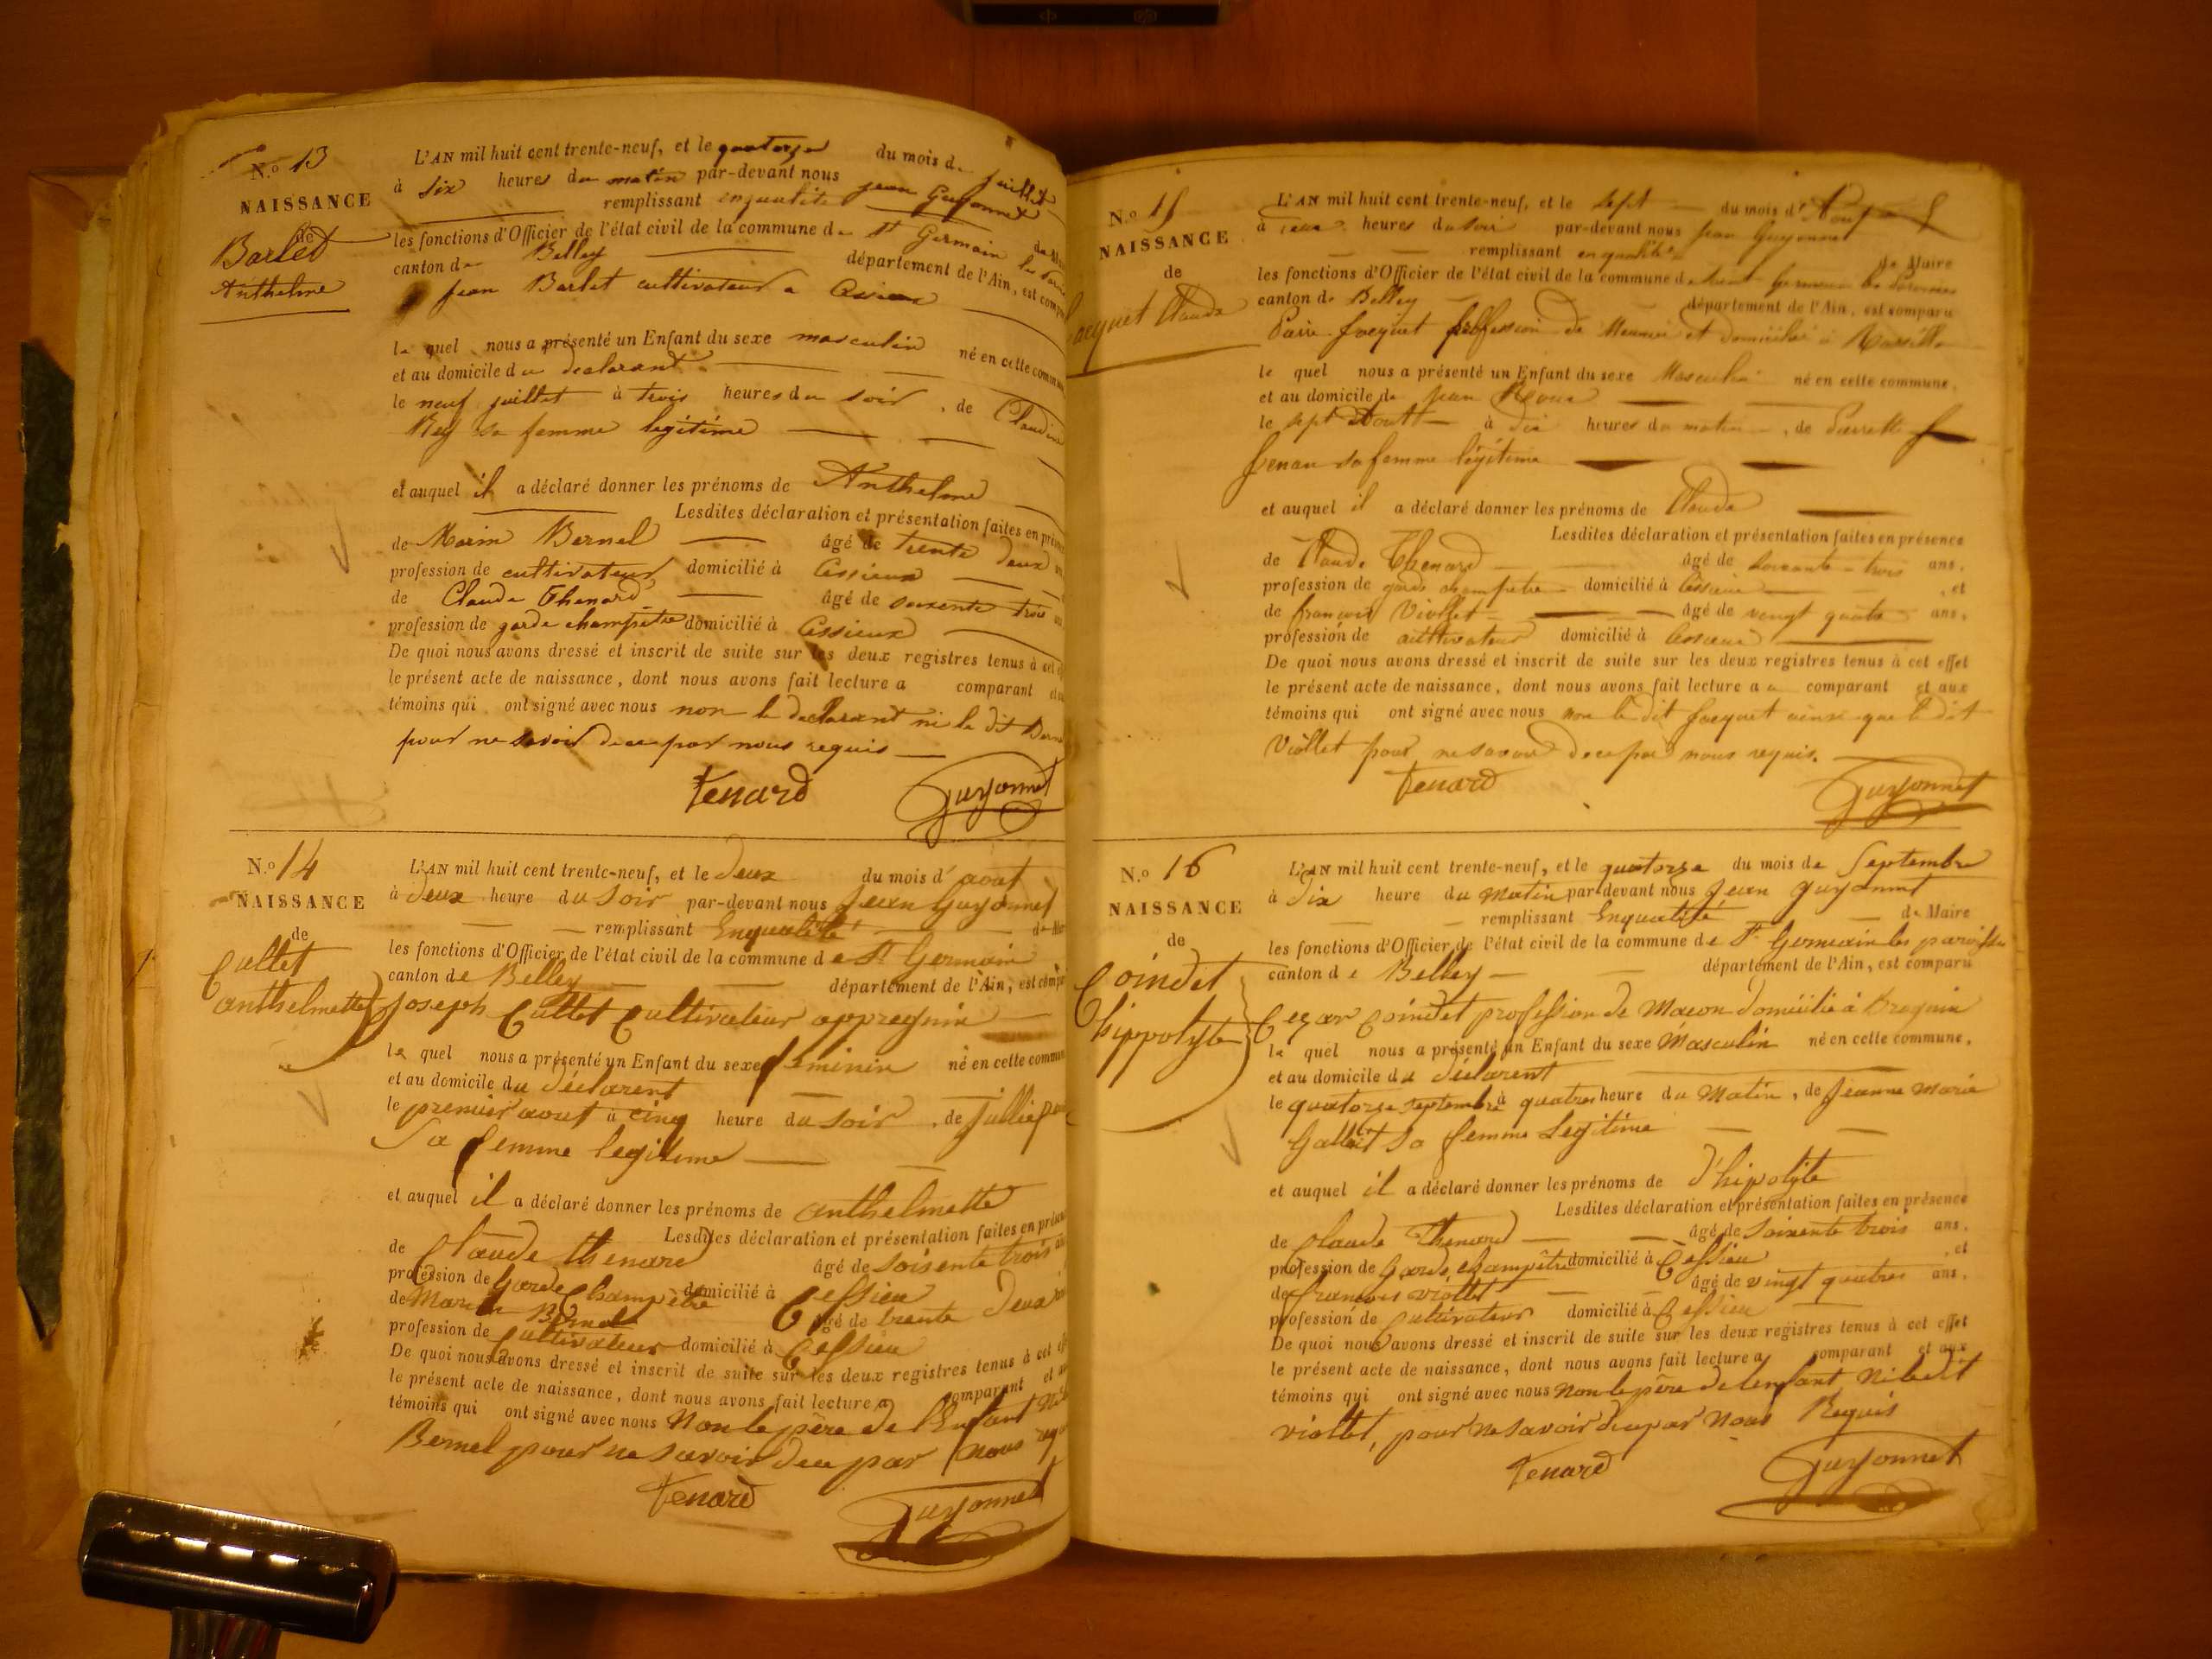 N.o 13
NAISSANCE
de
Barlet
Anthelme
L'AN mil huit cent trente-neuf, et le quatorze du mois de juillet
à six heures du matin par-devant nous jean Guyonnet
remplissant enqualité de
les fonctions d'Officier de l'état civil de la commune de St Germain les
canton de Belley département de l'Ain, est comparu
jean Barlet cultivateur a Cessieux
le quel nous a présenté un Enfant du sexe masculin né en cette
et au domicile du declarant
le neuf juillet à trois heures du soir, de Claudine
Rey sa femme legitime
et auquel il a déclaré donner les prénoms de Anthelme
Lesdites déclaration et présentation faites en
de Marin Bernel âgé de trente deux
profession de cultivateur domicilié à Cessieux
de Claude Thenard âgé de soixente trois
profession de garde champêtre domicilié à Cessieux
De quoi nous avons dressé et inscrit de suite sur les deux registres tenus à cet
le présent acte de naissance, dont nous avons fait lecture a comparant
témoins qui ont signé avec nous non le declarant ni le dit
pour ne savoir dece par nous requis
Tenard Guyonnet
N.o 14
NAISSANCE
de
Cullet
anthelmette
L'AN mil huit cent trente-neuf, et le deux du mois d'aout
à deux heure du Soir par-devant nous Jean Guyonnet
remplissant Enqualité
les fonctions d'Officier de l'état civil de la commune de St Germain
canton de Belley département de l'Ain, est
Joseph Cullet Cultivateur appregnin
le quel nous a présenté un Enfant du sexe feminin né en cette
et au domicile du déclarent
le premier aout à cinq heure du soir, de Jullie
Sa femme legitime
et auquel il a déclaré donner les prénoms de anthelmette
Lesdites déclaration et présentation faites en
de Claude thenard âgé de soisente trois
profession de Garde Champêtre domicilié à Cessieu
de Marin Bernel âgé de trente deux
profession de Cultivateur domicilié à Cessieu
De quoi nous avons dressé et inscrit de suite sur les deux registres tenus à cet
le présent acte de naissance, dont nous avons fait lecture a comparant et
témoins qui ont signé avec nous Non le père de l'Enfant
Bernel pour ne savoir dece par nous
Tenard Guyonnet
N.o 15
NAISSANCE
de
Claude
L'AN mil huit cent trente-neuf, et le sept du mois d'
à heures du soir par-devant nous jean Guyonnet
remplissant enqualité de Maire
les fonctions d'Officier de l'état civil de la commune de saint germain les Paroisses
canton de Belley département de l'Ain, est comparu
jacquet proffession de Meunier et domicilié à
le quel nous a présenté un Enfant du sexe Masculin né en cette commune,
et au domicile de jean
le sept Aoutt à dix heures du matin, de Pierrette
sa femme légitime
et auquel il a déclaré donner les prénoms de Claude
Lesdites déclaration et présentation faites en présence
de Claude Thenard âgé de soixante-trois ans,
profession de garde champetre domicilié à Cessieu, et
de françois Viollet âgé de vingt quatre ans,
profession de cultivateur domicilié à Cessieu
De quoi nous avons dressé et inscrit de suite sur les deux registres tenus à cet effet
le présent acte de naissance, dont nous avons fait lecture a comparant et aux
témoins qui ont signé avec nous non le dit jacquet ainsi que le dit
Viollet pour ne savoir dece par nous requis.
Tenard Guyonnet
N.o 16
NAISSANCE
de
Coindet
hippolyte
L'AN mil huit cent trente-neuf, et le quatorze du mois de Septembre
à dix heure du Matin par-devant nous Jean guyonnet
remplissant Enqualité de Maire
les fonctions d'Officier de l'état civil de la commune de St Germain les paroisses
canton de Belley département de l'Ain, est comparu
Cezar Coindet profession de Macon domicilié à Bregnin
le quel nous a présenté un Enfant du sexe Masculin né en cette commune,
et au domicile du déclarent
le quatorze septembre à quatres heure du Matin, de Jeanne Marie
sa femme Legitime
et auquel il a déclaré donner les prénoms de d'hipolite
Lesdites déclaration et présentation faites en présence
de Claude Thenard âgé de soixente trois ans,
profession de Garde champêtre domicilié à Cessieu, et
de francois viollet âgé de vingt quatres ans,
profession de Cultivateur domicilié à Cessieu
De quoi nous avons dressé et inscrit de suite sur les deux registres tenus à cet effet
le présent acte de naissance, dont nous avons fait lecture a comparant et aux
témoins qui ont signé avec nous Non le père de lenfant Ni ledit
viollet, pour ne savoir dece par Nous Requis
Tenard Guyonnet